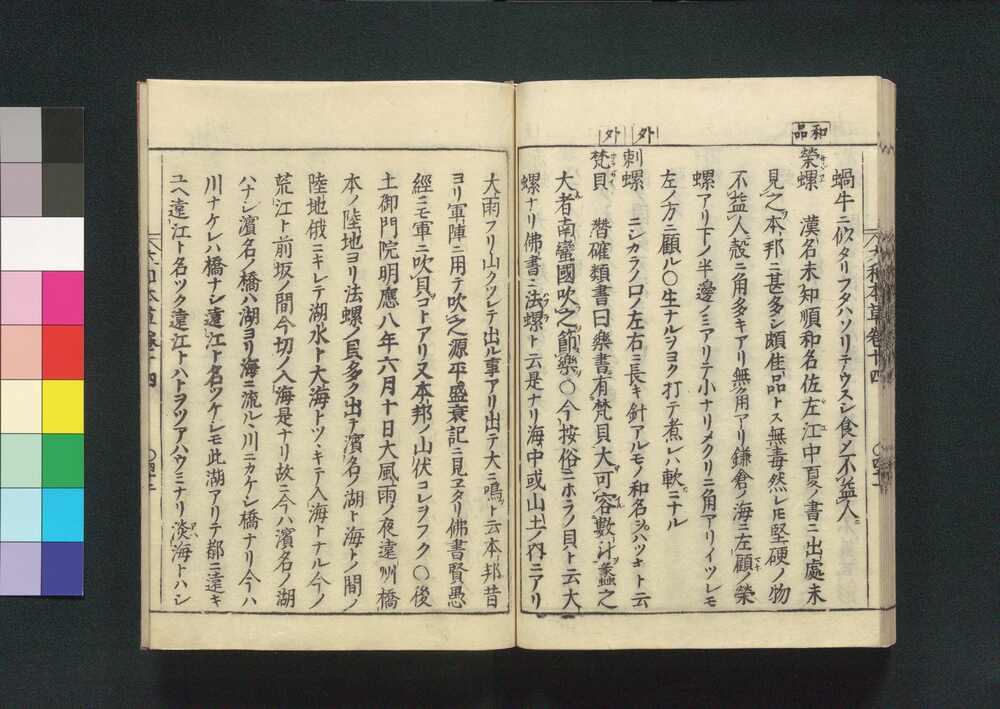 和品
外
外
蝸牛ニ似タリフタハソリテウスシ食ノ不益人ニ
榮螺 漢名未知順和名佐左江中夏ノ書ニ出處未
見之本邦ニ甚多シ頗佳品トス無毒然レ𪜈堅硬ノ物
不益人殻ニ角多キアリ無角アリ鎌倉ノ海ニ左顧ノ榮
螺アリ下ノ半邊ノミアリテ小ナリメクリニ角アリイツレモ
左ノ方ニ顧ル〇生ナルヲヨク打テ煮レハ軟ニナル
刺螺 ニシカラノ口ノ左右ニ長キ針アルモノ和名ハツキト云
梵貝 潛確類書曰樂書有梵貝大可容數斗蠡之
大者南蠻國吹之節樂〇今按俗ニホラノ貝ト云大
螺ナリ佛書ニ法螺ト云是ナリ海中或山土ノ内ニアリ
大和本草卷十四
大雨フリ山クツレテ出ル事アリ出テ大ニ鳴ト云本邦昔
ヨリ軍陣ニ用テ吹之源平盛衰記ニ見ヱタリ佛書賢愚
經ニモ軍ニ吹貝コトアリ又本邦ノ山伏コレヲフク〇後
土御門院明應八年六月十日大風雨ノ夜遠州橋
本ノ陸地ヨリ法螺ノ貝多ク出テ濱名ノ湖ト海トノ間ノ
陸地俄ニキレテ湖水ト大海トツヽキテ入海トナル今ノ
荒江ト前坂ノ間今切ノ入海是ナリ故ニ今ハ濱名ノ湖
ハナシ濱名ノ橋ハ湖ヨリ海ニ流ルヽ川ニカケシ橋ナリ今ハ
川ナケレハ橋ナシ遠江ト名ツケシモ此湖アリテ都ニ遠キ
ユヘ遠江ト名ツク遠江トハトヲツアハウミナリ淡海トハシ
大和本草卷十四